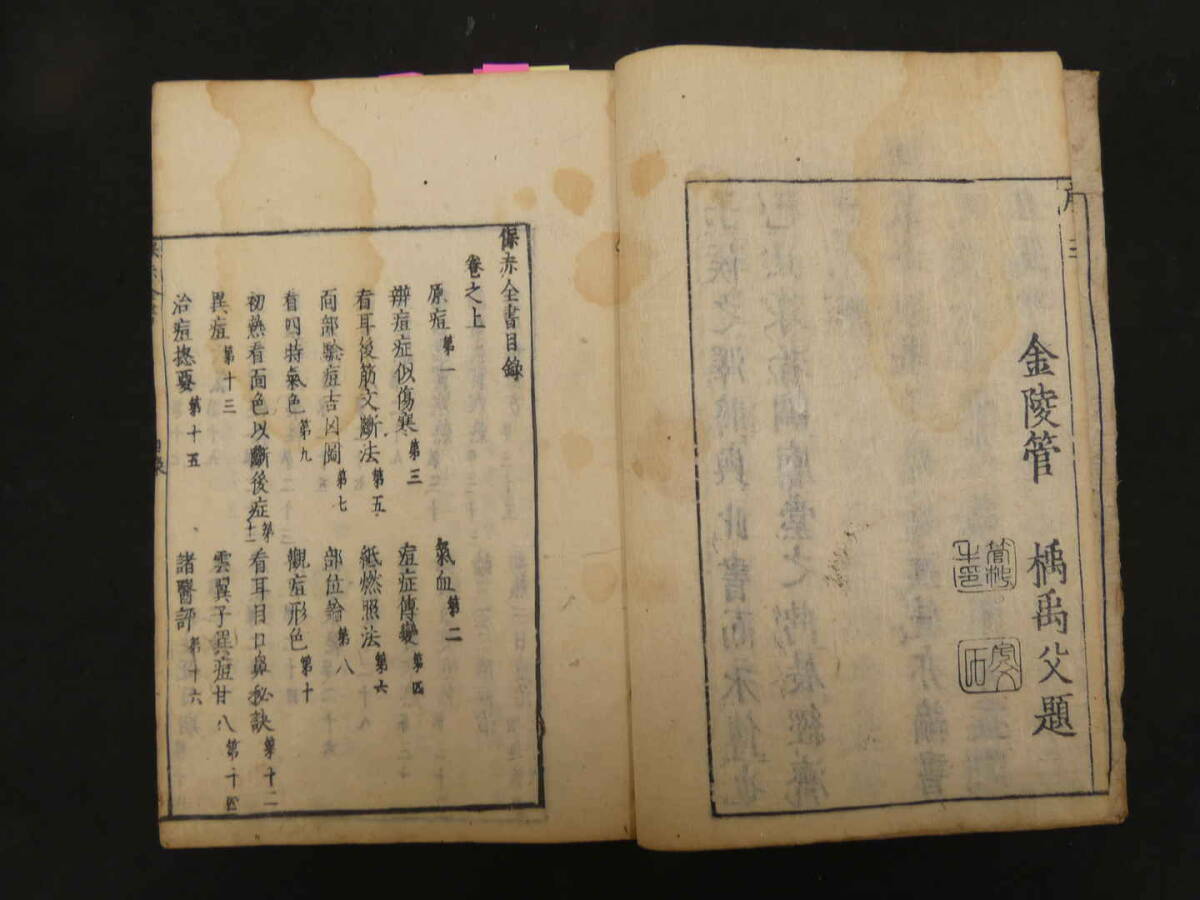 序
三
金陵管 橘禹父題
保赤全書目錄
卷之上
原痘第一 氣血第二
辨痘症似傷寒第三 痘症傳變第四
看耳後筋文斷法第五 紙燃照法第六
面部驗痘吉凶圖第七 部位論第八
看四時氣色第九 觀痘形色第十
初熱看面色以斷後症第十一 看耳目口鼻秘訣第十二
異痘第十三 雲翼子異痘廿八第十四
治痘揔要第十五 諸醫評第十六
保赤全書
目錄